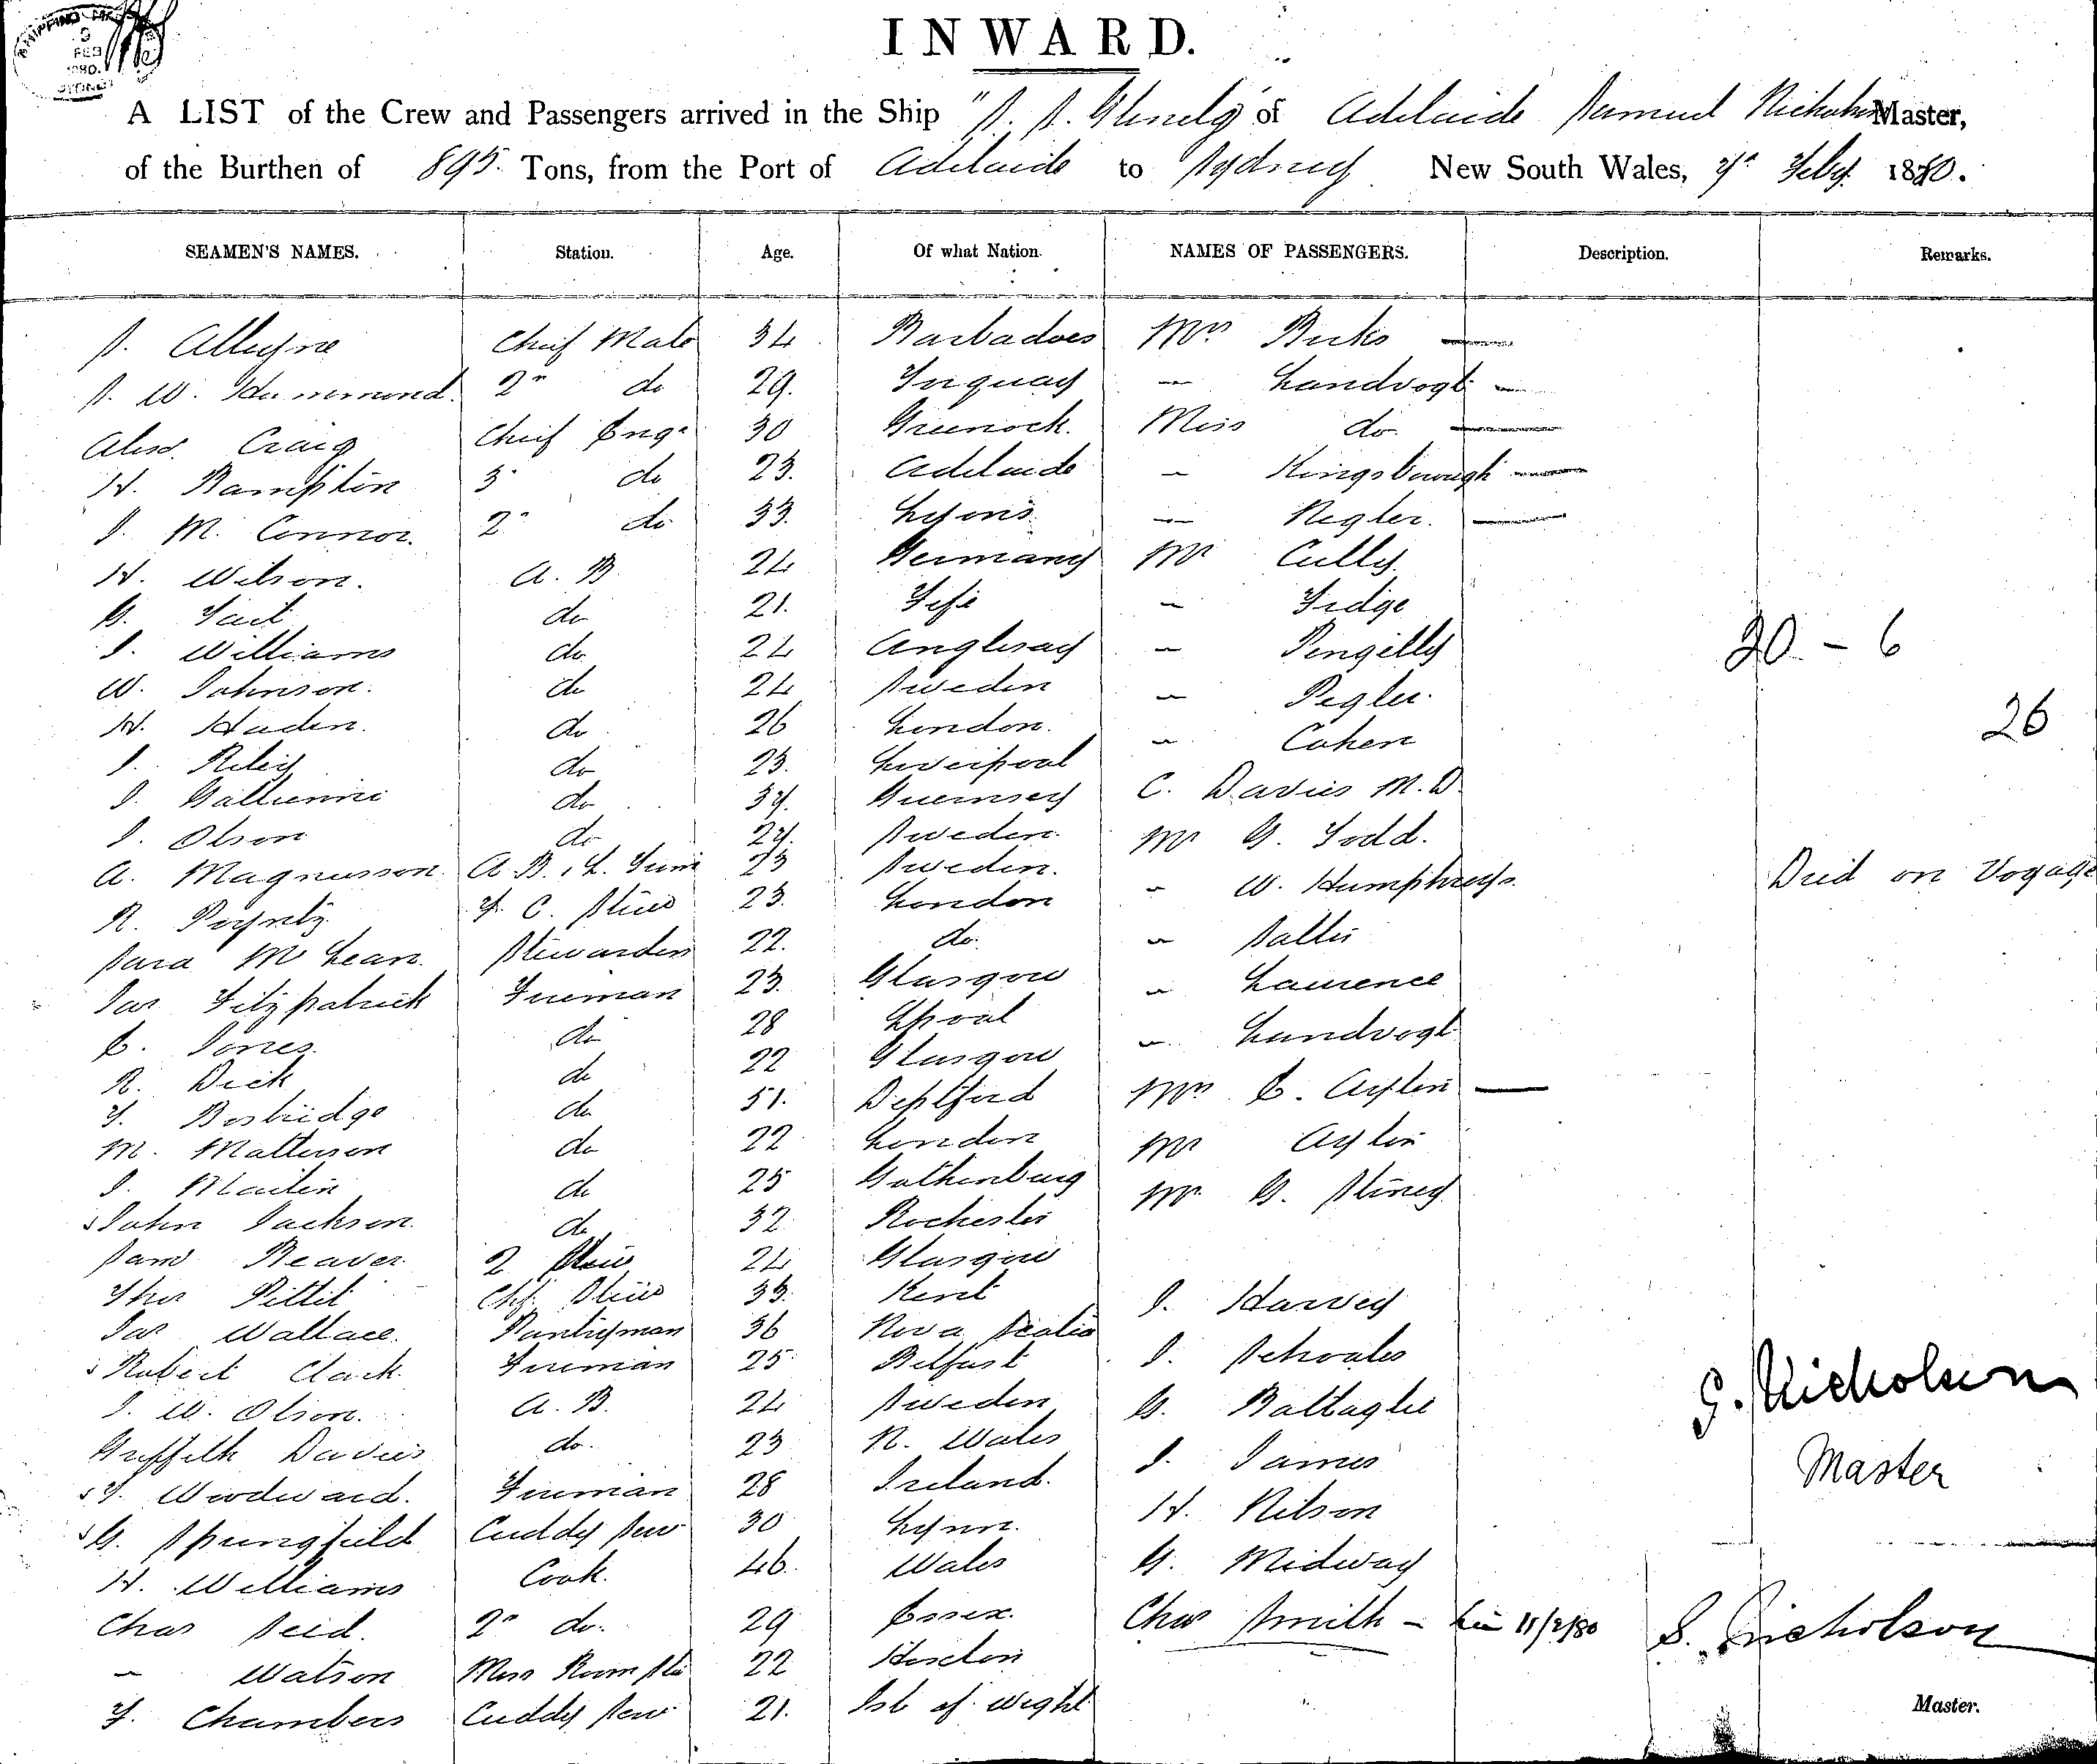 SHIPPING
FEB
1880.
SYDNEY
INWARD.
A LIST of the Crew and Passengers arrived in the Ship "S. S. Glenelg" of Adelaide Samuel Nicholson Master,
of the Burthen of 895 Tons, from the Port of Adelaide to Sydney New South Wales, Feby 1880.
SEAMEN'S NAMES. Station. Age. Of what Nation. NAMES OF PASSENGERS. Description. Remarks.
S. Alleyne Chief Mate 34 Barbadoes Mrs Bucks —
S. W. Hammond. 2nd do 29. Torquay — Landvogt —
Alexr. Craig Chief Engr 30 Greenock. Miss do. —
H. Bampton 3 do 23. Adelaide — Kingsborough —
J. M. Connor. 2 do 33. Lyons — Negler. —
H. Wilson. A. B. 24 Germany Mr Cully
G. Tait do 21. Fife — Fidge
J. Williams do 24 Anglesay — Pengilly
W. Johnson. do 24 Sweden — Pegler
H. Haden. do 26 London. — Cohen
J. Riley do 23. Liverpool C. Davies M. D.
J. Gallienne do 37. Guernsey Mr G. Todd.
J. Olson do 27. Sweden. — W. Humphreys.
A. Magnusson. A. B. & L. Trim 23 Sweden. Died on Voyage
R. Poyntz F. C. Stew 23. London — Salter
Sara McLean. Stewardess 22. do. — Laurence
Jas Fitzpatrick Fireman 23. Glasgow — Landvogt
E. Jones. do 28 Lpool Mrs E. Ayslin —
R. Dick do 22 Glasgow Mr Ayslin
T. Bosbridge do 51. Deptford Mr G. Stiney
M. Matterson do 22 London
J. Martin do 25 Gothenburg
John Jackson. do 32 Rochester
Saml Beaver. 2 Stew 24 Glasgow
Thos Pittit Chf. Stew 33. Kent J. Harvey
Jas Wallace. Pantryman 36 Nova Scotia J. Schoales
Robert Clark. Fireman 25 Belfast G. Battaglie
J. W. Olson. A. B. 24 Sweden J. James
Griffith Davies do. 23 N. Wales H. Nilson
T. Woodward. Fireman 28 Ireland. G. Midway
G. Springfield Cuddy Serv 30 Lynn. Chas Smith — 11/2/80
H. Williams Cook. 46. Wales
Chas Reid. 2nd do. 29 Essex.
— Watson Mess Room Ste 22 Hendon
F. Chambers Cuddy Serv 21. Isle of Wight
20 - 6
26
S. Nicholson
Master
S. Nicholson
Master.